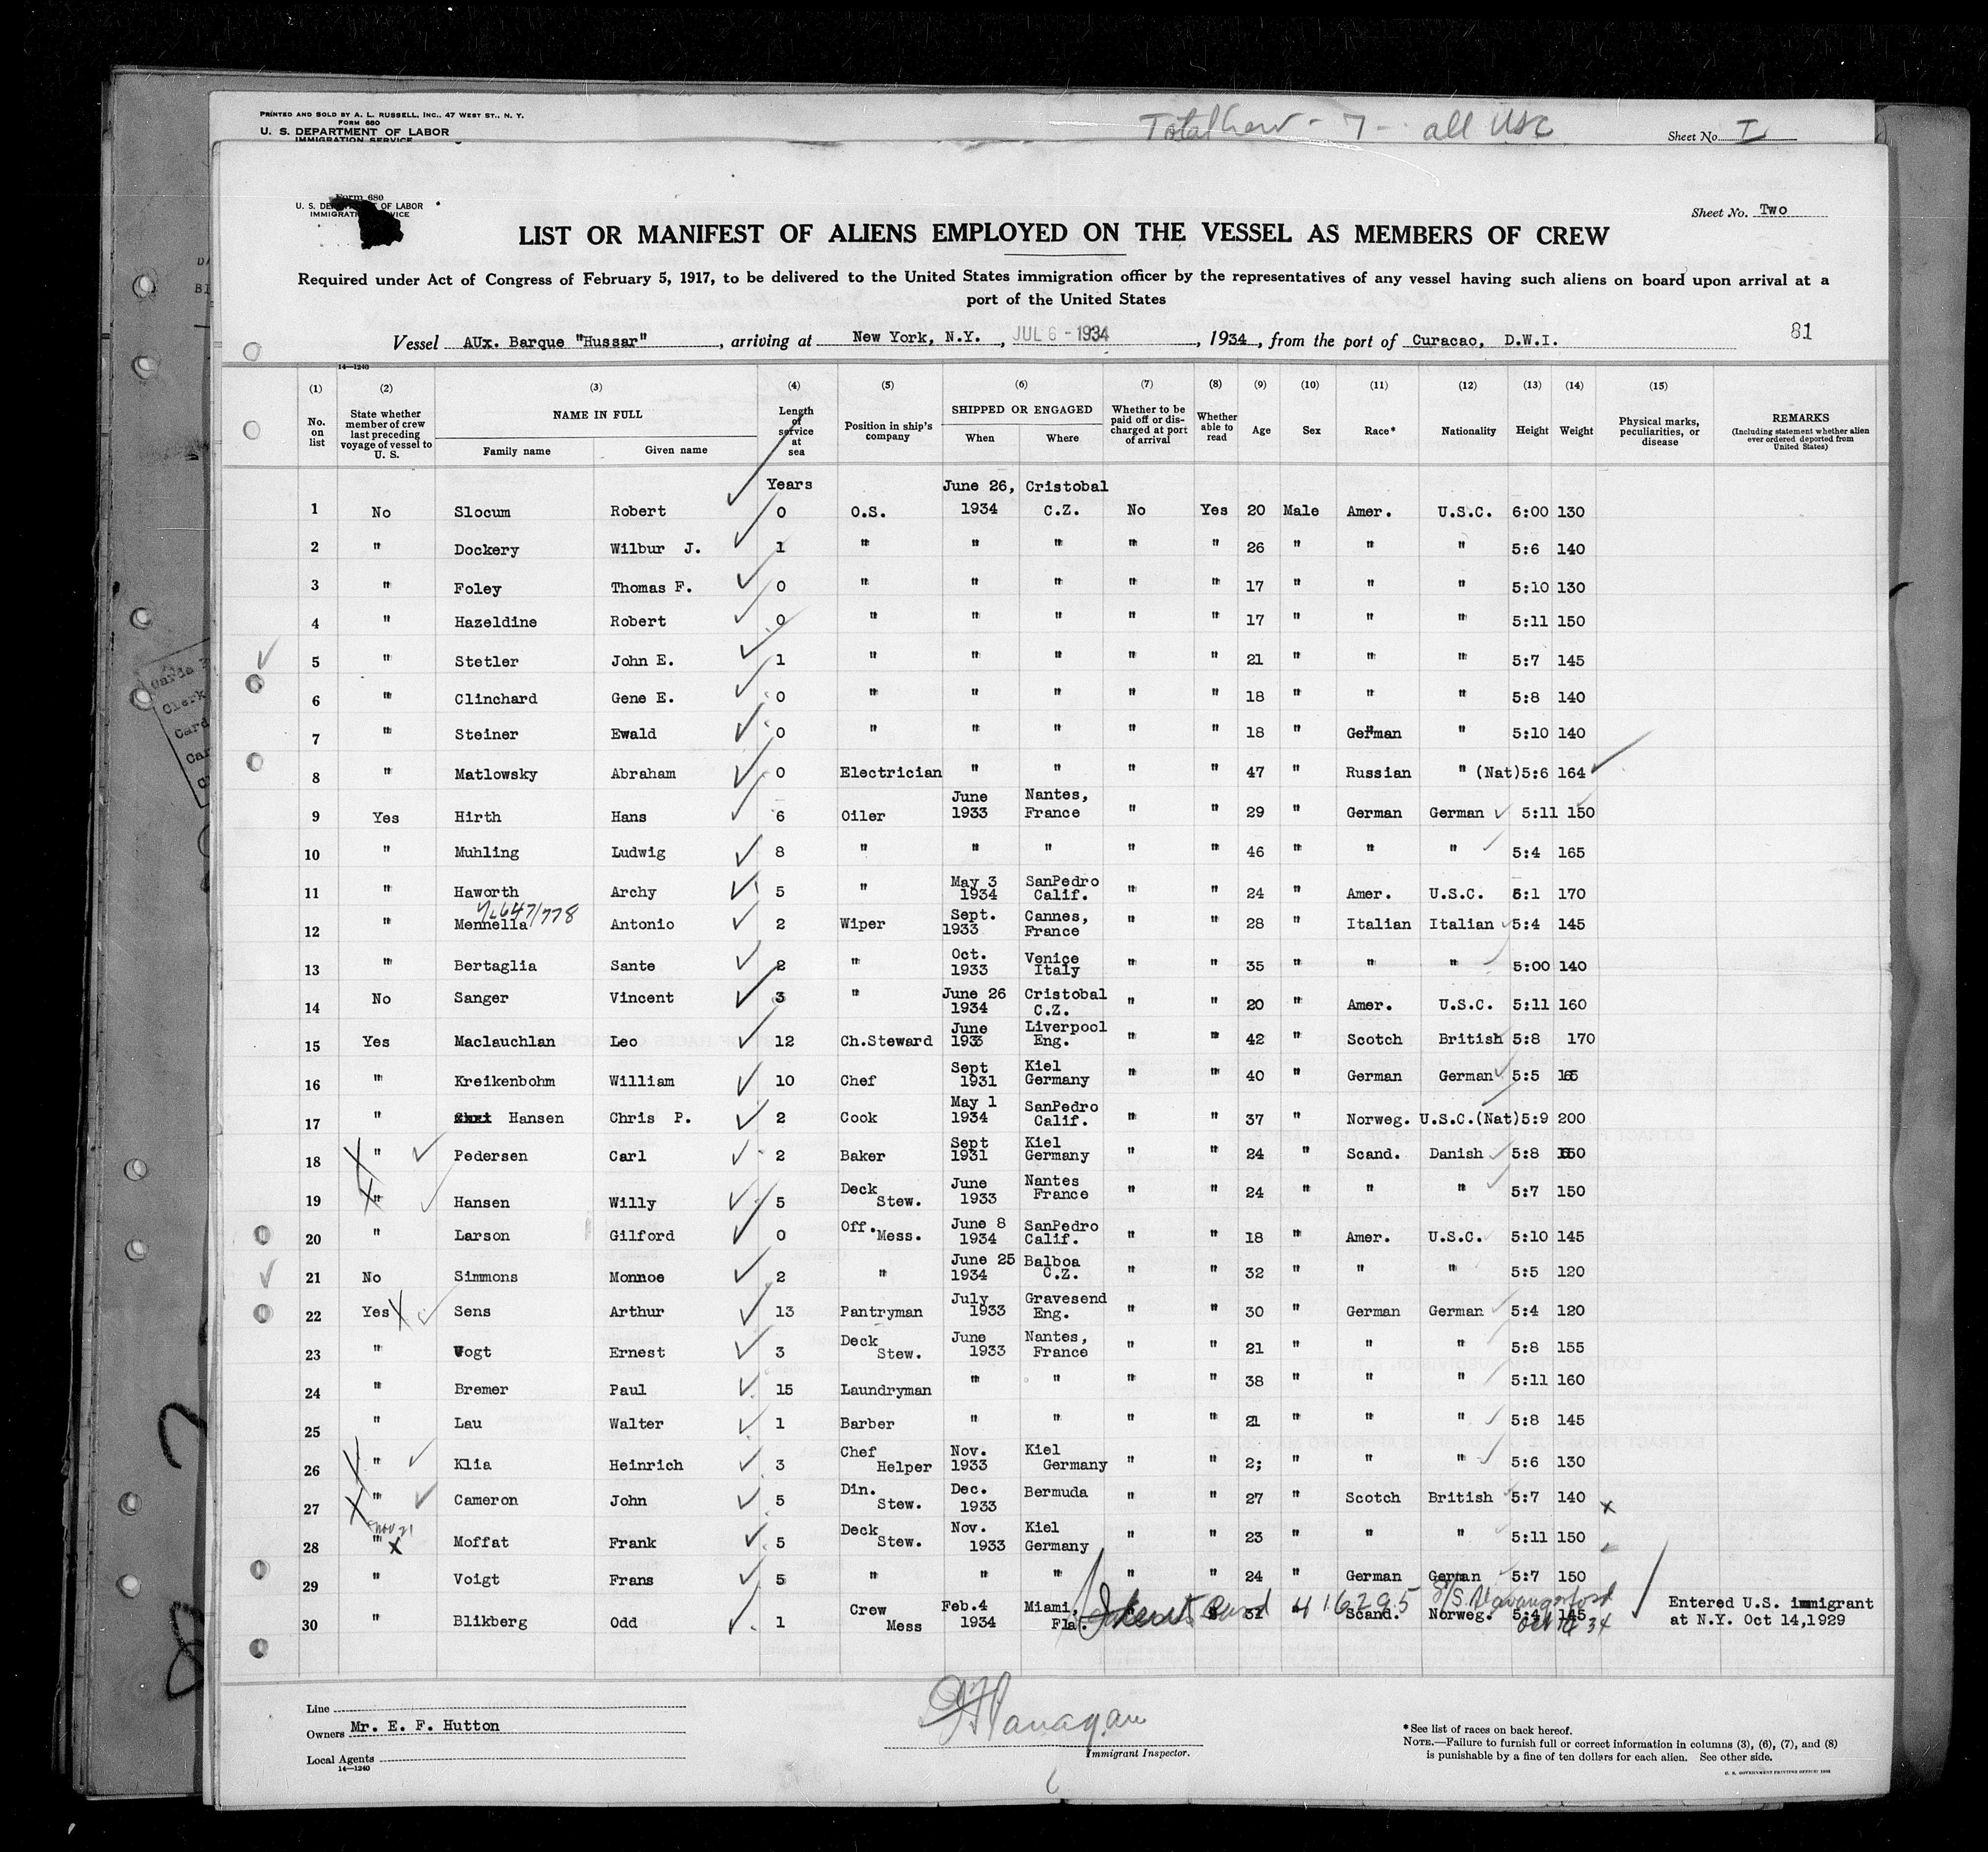 PRINTED AND SOLD BY A. L. RUSSELL, INC., 47 WEST ST., N. Y.
FORM 680
U. S. DEPARTMENT OF LABOR
IMMIGRATION SERVICE
Total Crew - 7 - all USC
Sheet No. I
Form 680
U. S. DEPARTMENT OF LABOR
IMMIGRATION SERVICE
Sheet No. Two
LIST OR MANIFEST OF ALIENS EMPLOYED ON THE VESSEL AS MEMBERS OF CREW
Required under Act of Congress of February 5, 1917, to be delivered to the United States immigration officer by the representatives of any vessel having such aliens on board upon arrival at a
port of the United States
Vessel AUx. Barque "Hussar", arriving at New York, N.Y., JUL 6 - 1934, 1934, from the port of Curacao, D.W.I. 81
14—1240
(1) (2) (3) (4) (5) (6) (7) (8) (9) (10) (11) (12) (13) (14) (15)
No. on list State whether member of crew last preceding voyage of vessel to U. S. NAME IN FULL Family name Given name Length of service at sea Position in ship's company SHIPPED OR ENGAGED When Where Whether to be paid off or discharged at port of arrival Whether able to read Age Sex Race* Nationality Height Weight Physical marks, peculiarities, or disease REMARKS (Including statement whether alien ever ordered deported from United States)
Years June 26, Cristobal
1 No Slocum Robert 0 O.S. 1934 C.Z. No Yes 20 Male Amer. U.S.C. 6:00 130
2 " Dockery Wilbur J. 1 " " " " " 26 " " " 5:6 140
3 " Foley Thomas F. 0 " " " " " 17 " " " 5:10 130
4 " Hazeldine Robert 0 " " " " " 17 " " " 5:11 150
5 " Stetler John E. 1 " " " " " 21 " " " 5:7 145
6 " Clinchard Gene E. 0 " " " " " 18 " " " 5:8 140
7 " Steiner Ewald 0 " " " " " 18 " German " 5:10 140
8 " Matlowsky Abraham 0 Electrician " " " " 47 " Russian " (Nat) 5:6 164
June Nantes,
9 Yes Hirth Hans 6 Oiler 1933 France " " 29 " German German 5:11 150
10 " Muhling Ludwig 8 " " " " " 46 " " " 5:4 165
May 3 SanPedro
11 " Haworth Archy 5 " 1934 Calif. " " 24 " Amer. U.S.C. 6:1 170
Sept. Cannes,
12 " Mennella Antonio 2 Wiper 1933 France " " 28 " Italian Italian 5:4 145
Oct. Venice
13 " Bertaglia Sante 2 " 1933 Italy " " 35 " " " 5:00 140
June 26 Cristobal
14 No Sanger Vincent 3 " 1934 C.Z. " " 20 " Amer. U.S.C. 5:11 160
June Liverpool
15 Yes Maclauchlan Leo 12 Ch.Steward 1933 Eng. " " 42 " Scotch British 5:8 170
Sept Kiel
16 " Kreikenbohm William 10 Chef 1931 Germany " " 40 " German German 5:5
May 1 SanPedro
17 " Hansen Chris P. 2 Cook 1934 Calif. " " 37 " Norweg. U.S.C.(Nat) 5:9 200
Sept Kiel
18 " Pedersen Carl 2 Baker 1931 Germany " " 24 " Scand. Danish 5:8
Deck June Nantes
19 " Hansen Willy 5 Stew. 1933 France " " 24 " " " 5:7 150
Off. June 8 SanPedro
20 " Larson Gilford 0 Mess. 1934 Calif. " " 18 " Amer. U.S.C. 5:10 145
June 25 Balboa
21 No Simmons Monnoe 2 " 1934 C.Z. " " 32 " " " 5:5 120
July Gravesend
22 Yes Sens Arthur 13 Pantryman 1933 Eng. " " 30 " German German 5:4 120
Deck June Nantes,
23 " Vogt Ernest 3 Stew. 1933 France " " 21 " " " 5:8 155
24 " Bremer Paul 15 Laundryman " " " " 38 " " " 5:11 160
25 " Lau Walter 1 Barber " " " " 21 " " " 5:8 145
Chef Nov. Kiel
26 " Klia Heinrich 3 Helper 1933 Germany " " 2; " " " 5:6 130
Din. Dec. Bermuda
27 " Cameron John 5 Stew. 1933 " " 27 " Scotch British 5:7 140
Deck Nov. Kiel
28 " Moffat Frank 5 Stew. 1933 Germany " " 23 " " " 5:11 150
29 " Voigt Frans 5 " " " " " 24 " German German 5:7 150
Crew Feb.4 Miami, 416295 Entered U.S. immigrant
30 " Blikberg Odd 1 Mess 1934 Fla. Scand. Norweg. 5:4 145 at N.Y. Oct 14,1929
Line
Owners Mr. E. F. Hutton
Local Agents
14—1240
Flanagan
Immigrant Inspector.
*See list of races on back hereof.
NOTE.—Failure to furnish full or correct information in columns (3), (6), (7), and (8)
is punishable by a fine of ten dollars for each alien. See other side.
U. S. GOVERNMENT PRINTING OFFICE